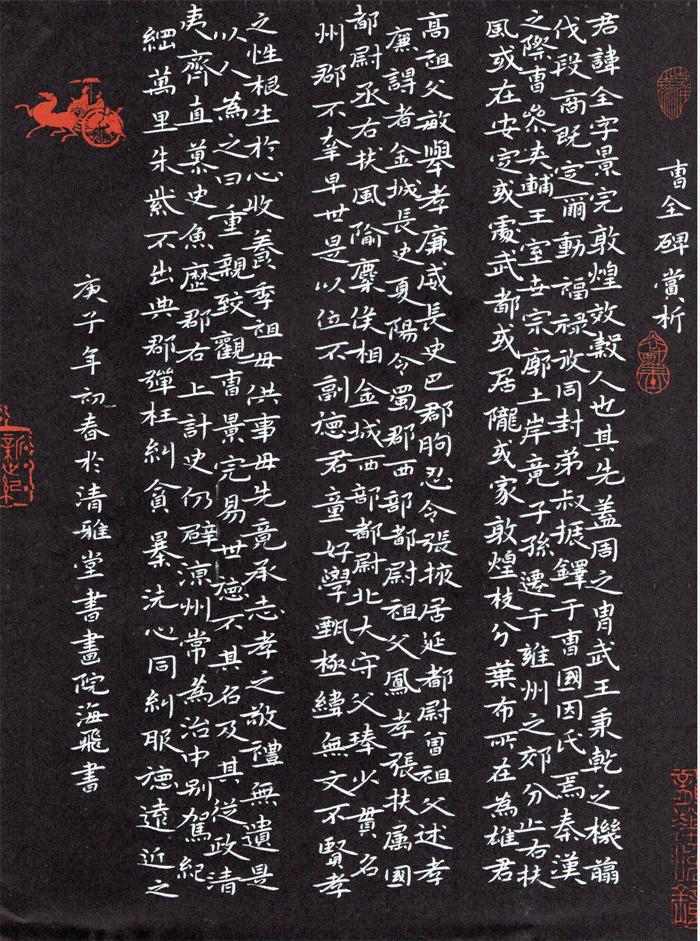 曹全碑赏析
君諱全字景完敦煌效穀人也其先蓋周之胄武王秉乾之機翦
伐段商既定爾動福禄攸同封弟叔振鐸于曹國因氏焉秦漢
之際曹參夹輔王室世宗廓土岸竟子孫遷于雍州之郊分止右扶
風或在安定或處武都或居隴或家敦煌枝分葉布所在為雄君
高祖父敏舉孝廉威長史巴郡朐忍令張掖居延都尉曾祖父述孝
廉謁者金城長史夏陽令蜀郡西部都尉祖父鳳孝張扶属國
都尉丞右扶風隃麋侯相金城西部都尉北大守父琫少貫名
州郡不幸早世是以位不副德君童好學甄極緯無文不賢孝
之性根生於心收養季祖母供事母先竟承志孝之敬禮無遺是
以人為之曰重親致觀曹景完易世德不其名及其従政清
夷齊直慕史魚歷郡右上計史仍辟涼州常為治中别駕紀
綱萬里朱紫不出典郡彈枉糾貪暴洗心同糾服德遠近之
庚子年初春於清雅堂書畫院海飛書